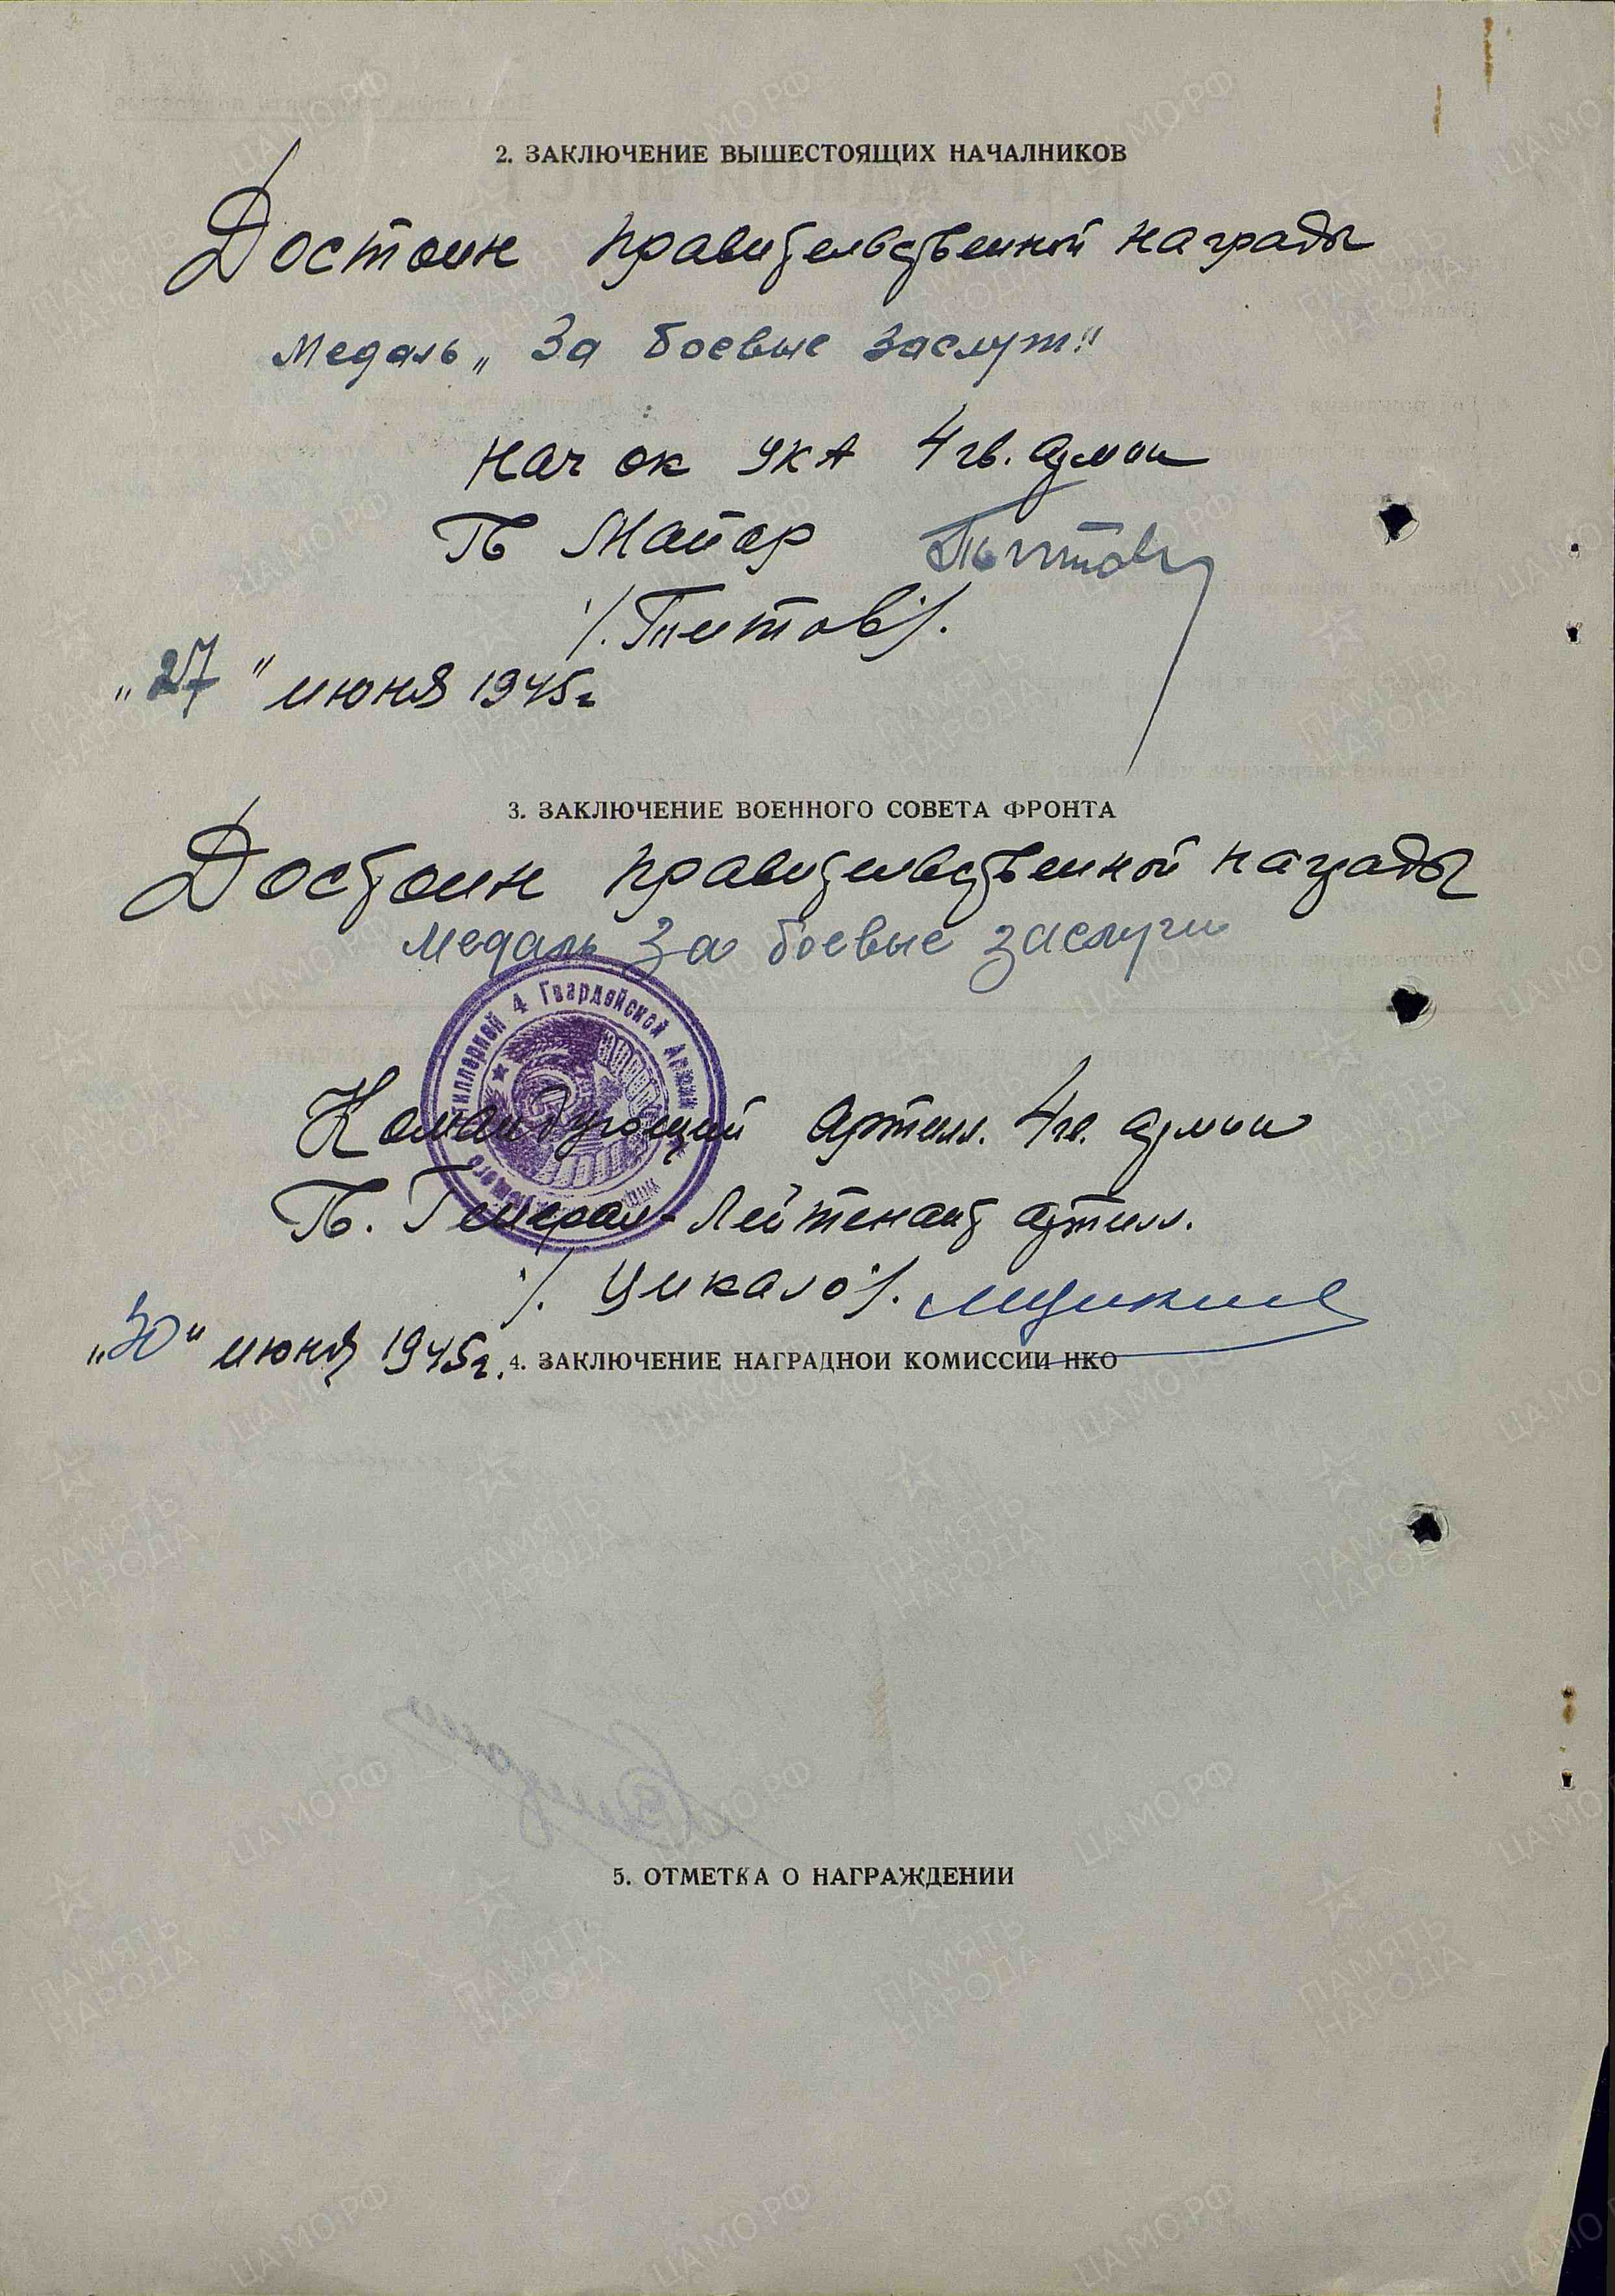 2. ЗАКЛЮЧЕНИЕ ВЫШЕСТОЯЩИХ НАЧАЛНИКОВ
Достоин правительственной награды
Медаль „За боевые заслуги"
Нач ок УКА 4 гв. армии
Гв Майор
/. Титов /.
„27" июня 1945г
3. ЗАКЛЮЧЕНИЕ ВОЕННОГО СОВЕТА ФРОНТА
Достоин правительственной награды
Медаль За боевые заслуги
4 Гвардейской Армии
Командующий Артилл. 4 гв. армии
Гв. Генерал-Лейтенант артилл.
/. Цикало /.
„30" июня 1945г.
4. ЗАКЛЮЧЕНИЕ НАГРАДНОЙ КОМИССИИ НКО
5. ОТМЕТКА О НАГРАЖДЕНИИ
ПАМЯТЬ НАРОДА
ЦА МО РФ